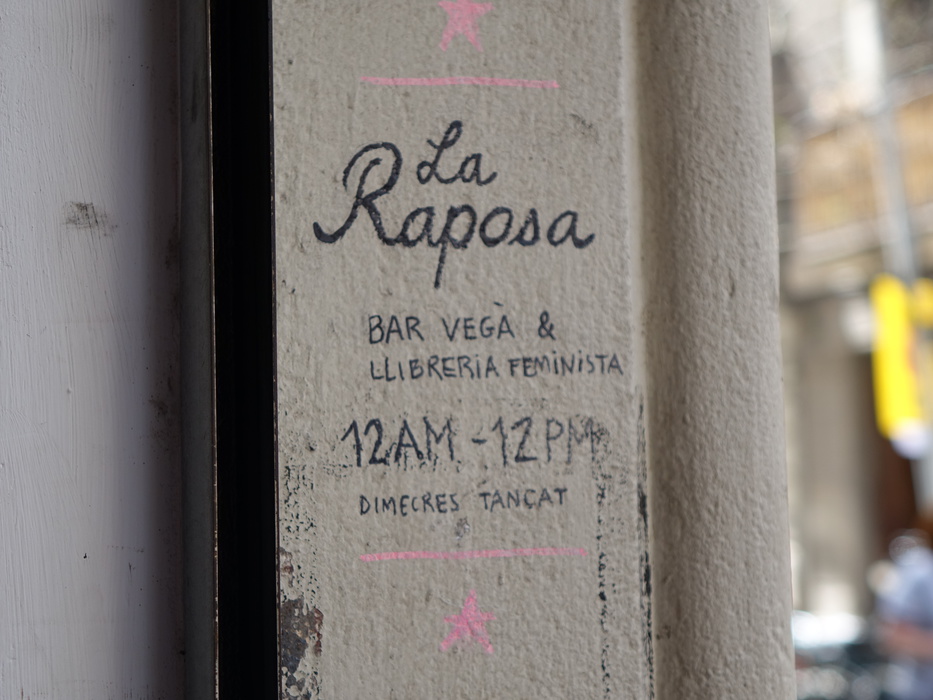 La
Raposa
BAR VEGÀ &
LLIBRERIA FEMINISTA
12AM - 12PM
DIMECRES TANCAT